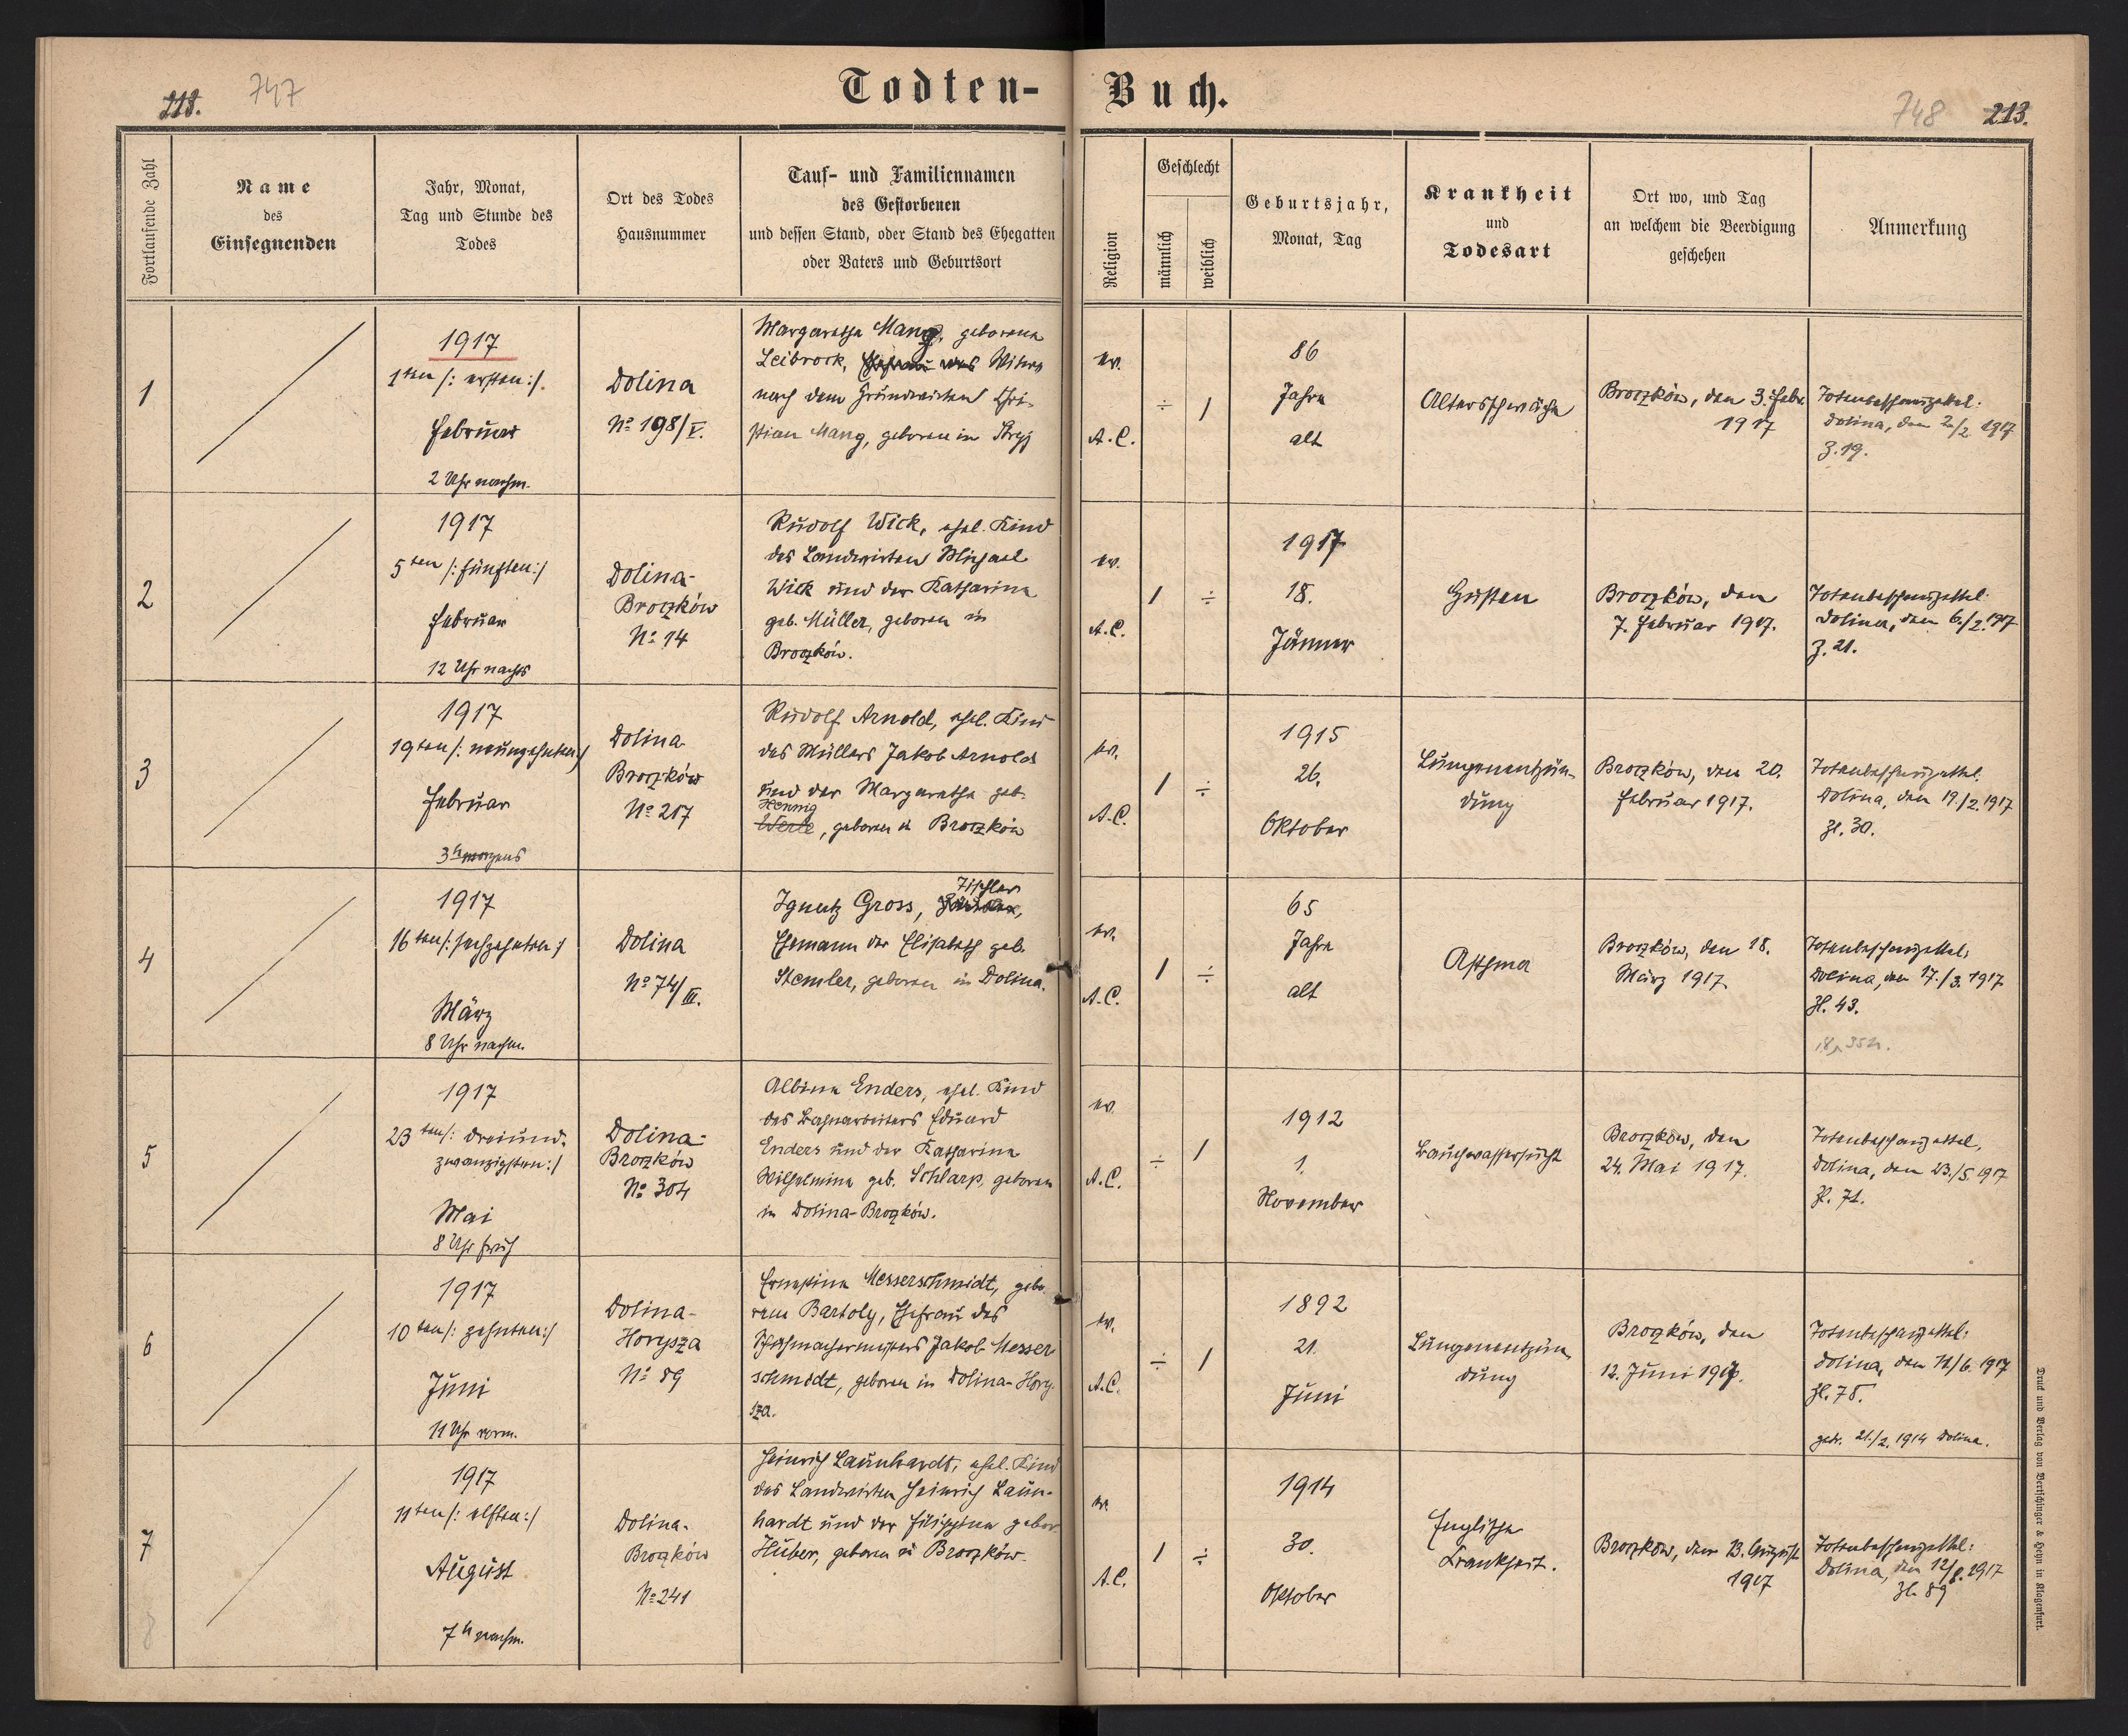 Todten-
Buch.
747
748
213.
Fortlaufende Zahl
Name
des
Einsegnenden
Jahr, Monat,
Tag und Stunde des
Todes
Ort des Todes
Hausnummer
Tauf- und Familiennamen
des Gestorbenen
und dessen Stand, oder Stand des Ehegatten
oder Vaters und Geburtsort
Religion
Geschlecht
männlich
weiblich
Geburtsjahr,
Monat, Tag
Krankheit
und
Todesart
Ort wo, und Tag
an welchem die Beerdigung
geschehen
Anmerkung
1
1917
1ten /: ersten:/.
Februar
2 Uhr nachm.
Dolina
No 198/V.
Margaretha Mang, geborene
Leibrock, Ehefrau des Witwe
nach dem Grundwirten Chri-
stian Mang, geboren in Stryj
ev.
A.C.
÷
1
86
Jahre
alt
Altersschwäche
Broczków, den 3. Febr.
1917
Totenbeschauzettel:
Dolina, den 2/2 1917
Z. 19.
2
1917
5ten /: fünften:/
Februar
12 Uhr nachts
Dolina-
Broczków
No 14
Rudolf Wick, ehel. Kind
des Landwirten Michael
Wick und der Katharina
geb. Müller, geboren in
Broczków.
ev.
A.C.
1
÷
1917
18.
Jänner
Husten
Broczków, den
7. Februar 1917.
Totenbeschauzettel:
Dolina, den 6./2. 1917
Z. 21.
3
1917
19ten /: neunzehnten:/
Februar
3h morgens
Dolina-
Broczków
No 217
Rudolf Arnold, ehel. Kind
des Müllers Jakob Arnold
und der Margaretha geb.
Hennig
Werle, geboren in Broczków
ev.
A.C.
1
÷
1915
26.
Oktober
Lungenentzün-
dung
Broczków, den 20.
Februar 1917.
Totenbeschauzettel.
Dolina, den 19./2. 1917
Zl. 30.
4
1917
16ten /: sechzehnten:/
März
8 Uhr nachm.
Dolina
No 74/III.
Tischler
Ignatz Gross,
Ehemann der Elisabeth geb.
Stemler, geboren in Dolina.
ev.
A.C.
1
÷
65
Jahre
alt
Asthma
Broczków, den 18.
März 1917
Totenbeschauzettel:
Dolina, den 17./3. 1917
Zl. 43.
5
1917
23ten /: dreiund-
zwanzigsten:/
Mai
8 Uhr früh
Dolina-
Broczków
No 304
Albine Enders, ehel. Kind
des Bahnarbeiters Eduard
Enders und der Katharina
Wilhelmina geb. Schlarp, geboren
in Dolina-Broczków.
ev.
A.C.
÷
1
1912
1.
November
Bauchwassersucht
Broczków, den
24. Mai 1917.
Totenbeschauzettel,
Dolina, den 23./5. 1917
Zl. 71.
6
1917
10ten /: zehnten:/
Juni
11 Uhr vorm.
Dolina-
Horysza
No 89
Ernestine Messerschmidt, gebo-
rene Bartoly, Ehefrau des
Schuhmachermeisters Jakob Messer
schmidt, geboren in Dolina-Hory-
sza.
ev.
A.C.
÷
1
1892
21.
Juni
Lungenentzün-
dung
Broczków, den
12. Juni 1917.
Totenbeschauzettel:
Dolina, den 11/6. 1917
Zl. 78.
getr. 21./2. 1914 Dolina.
7
1917
11ten /: elften:/
August
7h nachm.
Dolina-
Broczków
No 241
Heinrich Launhardt, ehel. Kind
des Landwirten Heinrich Laun-
hardt und der Filippina gebor.
Huber, geboren in Broczków.
ev.
A.C.
1
÷
1914
30.
Oktober
Englische
Krankheit.
Broczków, den 13. August
1917
Totenbeschauzettel:
Dolina, den 12/8. 1917
Zl. 89
8
Druck und Verlag von Bertschinger & Heyn in Klagenfurt.